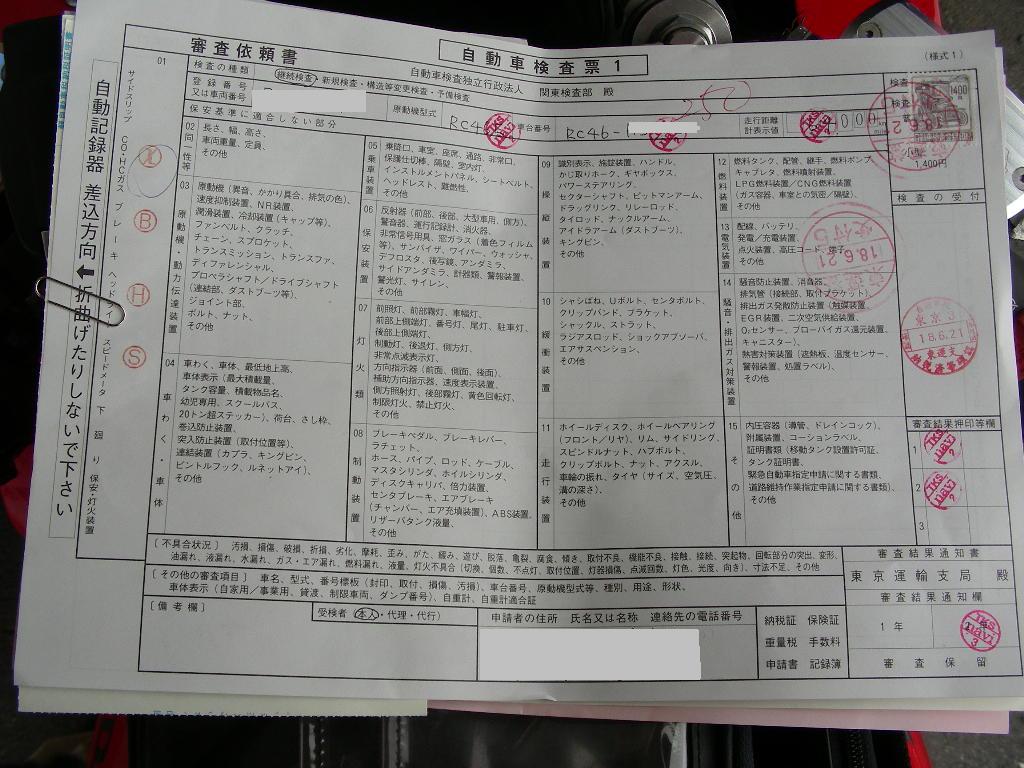 自動車検査票1
(様式1)
審査依頼書
01
検査の種類
継続検査・新規検査・構造等変更検査・予備検査
自動車検査独立行政法人 関東検査部 殿
登録番号
又は車両番号
原動機型式
RC46
車台番号
RC46-1
走行距離
計表示値
250
1400
1,400円
保安基準に適合しない部分
02
同一性等
長さ、幅、高さ、
車両重量、定員、
その他
03
原動機・動力伝達装置
原動機(異音、かかり具合、排気の色)、
速度抑制装置、NR装置、
潤滑装置、冷却装置(キャップ等)、
ファンベルト、クラッチ、
チェーン、スプロケット、
トランスミッション、トランスファ、
ディファレンシャル、
プロペラシャフト/ドライブシャフト
(連結部、ダストブーツ等)、
ジョイント部、
ボルト、ナット、
その他
04
車わく・車体
車わく、車体、最低地上高、
車体表示(最大積載量、
タンク容量、積載物品名、
幼児専用、スクールバス、
20トン超ステッカー)、荷台、さし枠、
巻込防止装置、
突入防止装置(取付位置等)、
連結装置(カプラ、キングピン、
ピントルフック、ルネットアイ)、
その他
05
乗車装置
乗降口、車室、座席、通路、非常口、
保護仕切棒、隔壁、室内灯、
インストルメントパネル、シートベルト、
ヘッドレスト、難燃性、
その他
06
保安装置
反射器(前部、後部、大型車用、側方)、
警音器、運行記録計、消火器、
非常信号用具、窓ガラス(着色フィルム
等)、サンバイザ、ワイパー、ウォッシャ、
デフロスタ、後写鏡、アンダミラ、
サイドアンダミラ、計器類、警報装置、
警光灯、サイレン、
その他
07
灯火類
前照灯、前部霧灯、車幅灯、
前部上側端灯、番号灯、尾灯、駐車灯、
後部上側端灯、
制動灯、後退灯、側方灯、
非常点滅表示灯、
方向指示器(前面、側面、後面)、
補助方向指示器、速度表示装置、
側方照射灯、後部霧灯、黄色回転灯、
制限灯火、禁止灯火、
その他
08
制動装置
ブレーキペダル、ブレーキレバー、
ラチェット、
ホース、パイプ、ロッド、ケーブル、
マスタシリンダ、ホイルシリンダ、
ディスクキャリパ、倍力装置、
センタブレーキ、エアブレーキ
(チャンバー、エア充填装置)、ABS装置、
リザーバタンク液量、
その他
09
操縦装置
識別表示、施錠装置、ハンドル、
かじ取りホーク、ギヤボックス、
パワーステアリング、
セクターシャフト、ピットマンアーム、
ドラッグリンク、リレーロッド、
タイロッド、ナックルアーム、
アイドラアーム(ダストブーツ)、
キングピン、
その他
10
緩衝装置
シャシばね、Uボルト、センタボルト、
クリップバンド、ブラケット、
シャックル、ストラット、
ラジアスロッド、ショックアブソーバ、
エアサスペンション、
その他
11
走行装置
ホイールディスク、ホイールベアリング
(フロント/リヤ)、リム、サイドリング、
スピンドルナット、ハブボルト、
クリップボルト、ナット、アクスル、
車輪の振れ、タイヤ(サイズ、空気圧、
溝の深さ)、
その他
12
燃料装置
燃料タンク、配管、継手、燃料ポンプ、
キャブレタ、燃料噴射装置、
LPG燃料装置/CNG燃料装置
(ガス容器、車室との気密/隔壁)、
その他
13
電気装置
配線、バッテリ、
発電/充電装置、
点火装置、高圧コード、端子、
その他
14
騒音・排出ガス対策装置
騒音防止装置、消音器、
排気管(接続部、取付ブラケット)、
排出ガス発散防止装置(触媒装置、
EGR装置、二次空気供給装置、
O₂センサ、ブローバイガス還元装置、
キャニスター)、
熱害対策装置(遮熱板、温度センサー、
警報装置、処置ラベル)、
その他
15
その他
内圧容器(導管、ドレインコック)、
附属装置、コーションラベル、
証明書類(移動タンク設置許可証、
タンク証明書、
緊急自動車指定申請に関する書類、
道路維持作業指定申請に関する書類)、
その他
検査の受付
18.6.21
18.6.21
審査結果押印等欄
1
TKS
navi
2
2
TKS
navi
2
3
[不具合状況] 汚損、損傷、破損、折損、劣化、摩耗、歪み、がた、緩み、遊び、脱落、亀裂、腐食、傾き、取付不良、機能不良、接触、接続、突起物、回転部分の突出、変形、
油漏れ、液漏れ、水漏れ、ガス・エア漏れ、燃料漏れ、液量、灯火不具合(切換、個数、不点灯、取付位置、灯器損傷、点滅回数、灯色、光度、向き)、寸法不足、その他
[その他の審査項目] 車名、型式、番号標板(封印、取付、損傷、汚損)、車台番号、原動機型式等、種別、用途、形状、
車体表示(自家用/事業用、貸渡、制限車両、ダンプ番号)、自重計、自重計適合証
[備考欄]
受検者(本人・代理・代行)
申請者の住所 氏名又は名称 連絡先の電話番号
納税証 保険証
重量税 手数料
申請書 記録簿
審査結果通知書
東京運輸支局 殿
審査結果通知欄
1年
TKS
navi
3
審査保留
自動記録器 差込方向 ← 折曲げたりしないで下さい
サイドスリップ CO・HCガス ブレーキ ヘッドライト スピードメータ 下廻り 保安・灯火装置
X
B
H
S